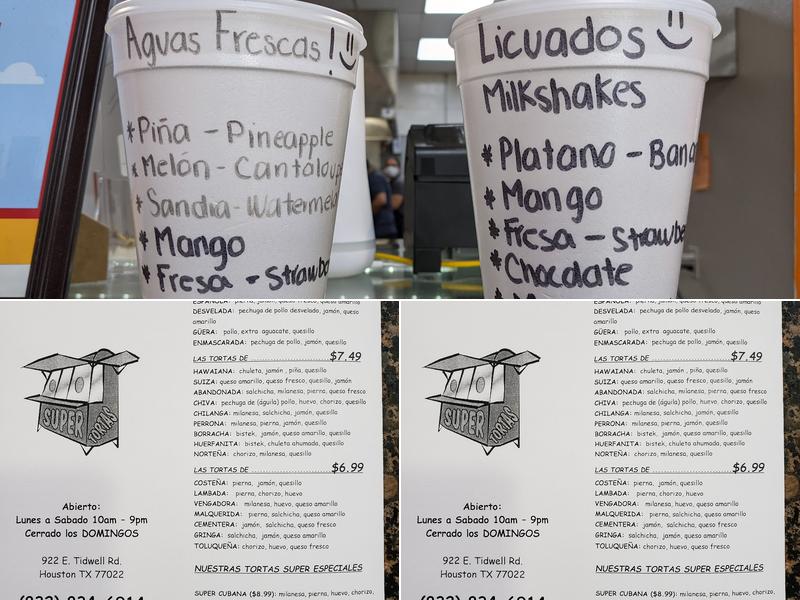 Aguas Frescas!
* Piña - Pineapple
* Melón - Cantaloup
* Sandia - Watermel
* Mango
* Fresa - Strawbe
Licuados
Milkshakes
* Platano - Bana
* Mango
* Fresa - Strawbe
* Chocolate
SUPER TORTAS
Abierto:
Lunes a Sabado 10am - 9pm
Cerrado los DOMINGOS
922 E. Tidwell Rd.
Houston TX 77022
DESVELADA: pechuga de pollo desvelado, jamón, queso
amarillo
GÜERA: pollo, extra aguacate, quesillo
ENMASCARADA: pechuga de pollo, jamón, quesillo
LAS TORTAS DE $7.49
HAWAIANA: chuleta, jamón, piña, quesillo
SUIZA: queso amarillo, queso fresco, quesillo, jamón
ABANDONADA: salchicha, milanesa, pierna, queso fresco
CHIVA: pechuga de (águila) pollo, huevo, chorizo, quesillo
CHILANGA: milanesa, salchicha, jamón, quesillo
PERRONA: milanesa, pierna, jamón, quesillo
BORRACHA: bistek, jamón, queso amarillo, quesillo
HUERFANITA: bistek, chuleta ahumada, quesillo
NORTEÑA: chorizo, milanesa, quesillo
LAS TORTAS DE $6.99
COSTEÑA: pierna, jamón, quesillo
LAMBADA: pierna, chorizo, huevo
VENGADORA: milanesa, huevo, queso amarillo
MALQUERIDA: pierna, salchicha, queso amarillo
CEMENTERA: jamón, salchicha, queso fresco
GRINGA: salchicha, jamón, queso amarillo
TOLUQUEÑA: chorizo, huevo, queso fresco
NUESTRAS TORTAS SUPER ESPECIALES
SUPER CUBANA ($8.99): milanesa, pierna, huevo, chorizo,
SUPER TORTAS
Abierto:
Lunes a Sabado 10am - 9pm
Cerrado los DOMINGOS
922 E. Tidwell Rd.
Houston TX 77022
DESVELADA: pechuga de pollo desvelado, jamón, queso
amarillo
GÜERA: pollo, extra aguacate, quesillo
ENMASCARADA: pechuga de pollo, jamón, quesillo
LAS TORTAS DE $7.49
HAWAIANA: chuleta, jamón, piña, quesillo
SUIZA: queso amarillo, queso fresco, quesillo, jamón
ABANDONADA: salchicha, milanesa, pierna, queso fresco
CHIVA: pechuga de (águila) pollo, huevo, chorizo, quesillo
CHILANGA: milanesa, salchicha, jamón, quesillo
PERRONA: milanesa, pierna, jamón, quesillo
BORRACHA: bistek, jamón, queso amarillo, quesillo
HUERFANITA: bistek, chuleta ahumada, quesillo
NORTEÑA: chorizo, milanesa, quesillo
LAS TORTAS DE $6.99
COSTEÑA: pierna, jamón, quesillo
LAMBADA: pierna, chorizo, huevo
VENGADORA: milanesa, huevo, queso amarillo
MALQUERIDA: pierna, salchicha, queso amarillo
CEMENTERA: jamón, salchicha, queso fresco
GRINGA: salchicha, jamón, queso amarillo
TOLUQUEÑA: chorizo, huevo, queso fresco
NUESTRAS TORTAS SUPER ESPECIALES
SUPER CUBANA ($8.99): milanesa, pierna, huevo, chorizo,